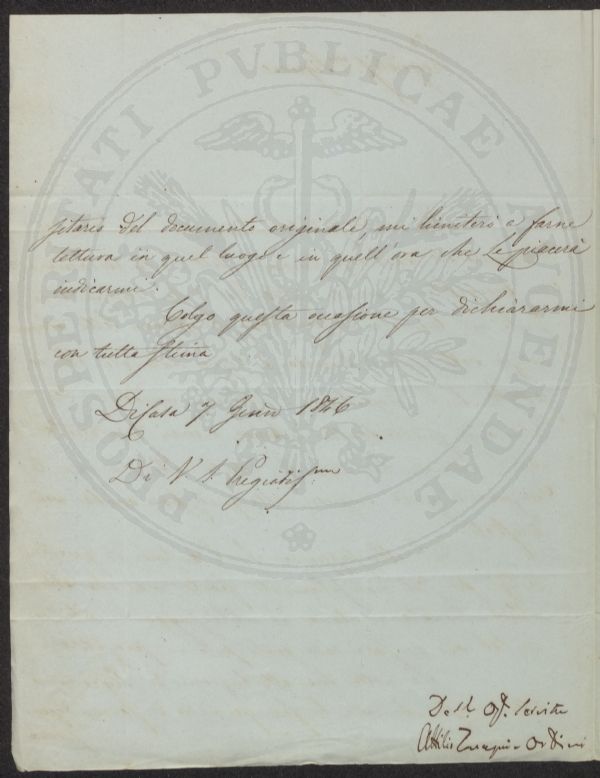 PROSPERITATI PVBLICAE AVGENDAE
sitario del documento originale, mi limiterò a farne
lettura in quel luogo e in quell'ora che Le piacerà
indicarmi.
Colgo questa occasione per dichiararmi
con tutta stima
Di Casa 7 Genn 1846
Di V. S. Pregiatissma
Dev. Obb. Servitore
Attilio Zuccagni Orlandini